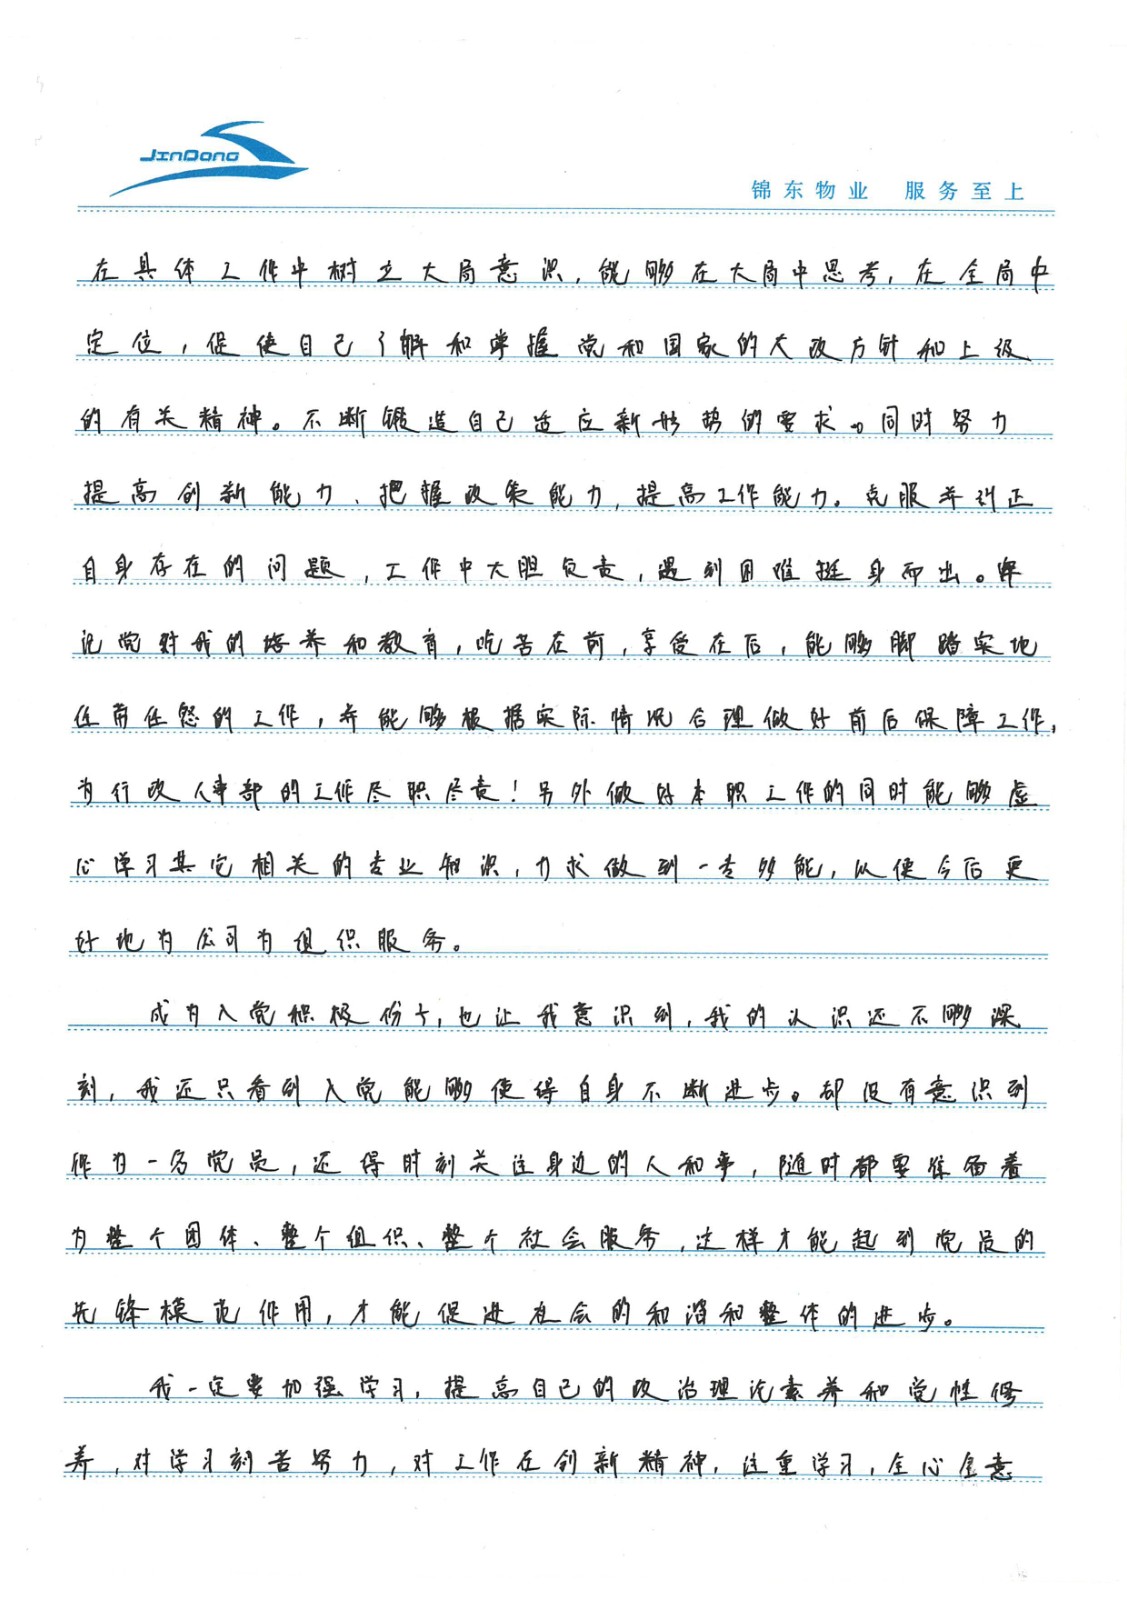 JinDong
锦东物业 服务至上
在具体工作中树立大局意识，能够在大局中思考，在全局中
定位，促使自己了解和掌握党和国家的大政方针和上级
的有关精神。不断锻造自己适应新形势的要求。同时努力
提高创新能力、把握政策能力，提高工作能力。克服并纠正
自身存在的问题，工作中大胆负责，遇到困难挺身而出。牢
记党对我的培养和教育，吃苦在前，享受在后，能够脚踏实地
任劳任怨的工作，并能够根据实际情况合理做好前后保障工作，
为行政人事部的工作尽职尽责！另外做好本职工作的同时能够虚
心学习其它相关的专业知识，力求做到一专多能，以便今后更
好地为公司为组织服务。
成为入党积极份子，也让我意识到，我的认识还不够深
刻，我还只看到入党能够使得自身不断进步。却没有意识到
作为一名党员，还得时刻关注身边的人和事，随时都要准备着
为整个团体、整个组织、整个社会服务，这样才能起到党员的
先锋模范作用，才能促进社会的和谐和整体的进步。
我一定要加强学习，提高自己的政治理论素养和党性修
养，对学习刻苦努力，对工作在创新精神，注重学习，全心全意